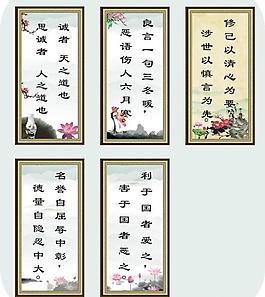 诚者 天之道也
思诚者 人之道也
良言一句三冬暖,
恶语伤人六月寒
修己以清心为要,
涉世以慎言为先。
名誉自屈辱中彰,
德量自隐忍中大。
利于国者爱之,
害于国者恶之。